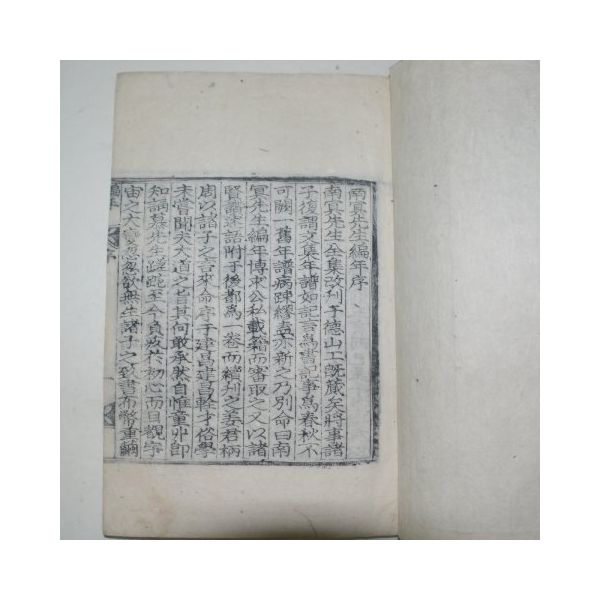 南冥先生編年序
南冥先生全集改刊于德山工旣蔵矣將事諸
子復謂文集年譜如記言爲書記事爲春秋不
可闕一舊年譜病踈繆盍亦新之乃別命曰南
冥先生編年博束公私載籍而審取之又以諸
賢語附于後鄭爲一卷而繼刊之姜君柄
周以諸子之言來命序于建昌建昌輇才俗學
未嘗聞夫大道之旨其何敢承然自惟童丱卽
知誦慕先生蹉跎至今負疚於初心而目觀宇
宙之大忽忽歎無生諸子之致書布幣重繭